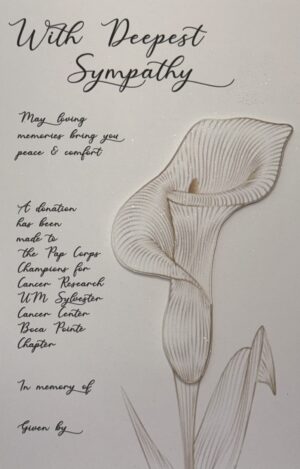 With Deepest
Sympathy
May loving
memories bring you
peace & comfort
A donation
has been
made to
the Pap Corps
Champions for
Cancer Research
UM Sylvester
Cancer Center
Boca Pointe
Chapter
In memory of
Given by